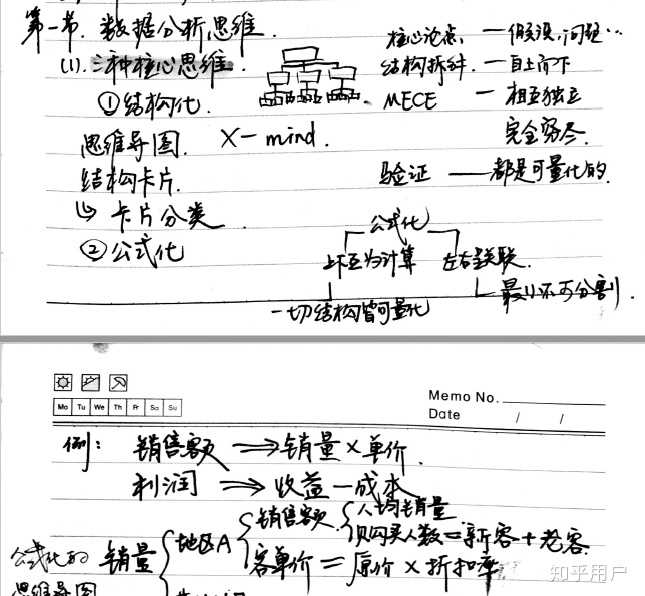 第一节. 数据分析思维.
(1). 三种核心思维.
① 结构化.
思维导图. X-mind.
结构卡片.
↳ 卡片分类
② 公式化
核心论点. — 假设,问题…
结构拆解. — 自上而下
MECE — 相互独立
完全穷尽.
验证 — 都是可量化的.
公式化
上下互为计算 左右呈关联.
一切结构皆可量化
最小不可分割.
Mo Tu We Th Fr Sa Su
Memo No.
Date / /
例: 销售额 ⇒ 销量 × 单价.
利润 ⇒ 收益 — 成本
公式化的
思维导图
销量 { 地区A { 销售额. { 人均销量
购买人数 = 新客 + 老客.
客单价 = 原价 × 折扣率
知乎用户